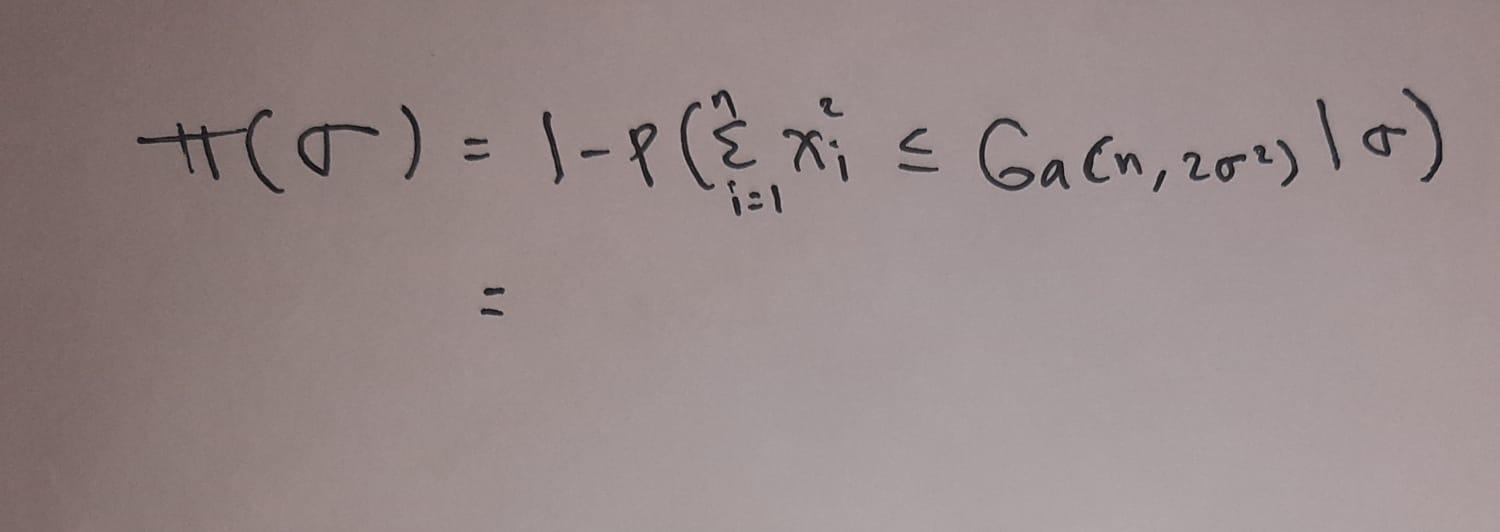 π(σ) = 1-P(∑ᵢ₌₁ⁿ xᵢ² ≤ Ga(n, 2σ²) | σ)
=